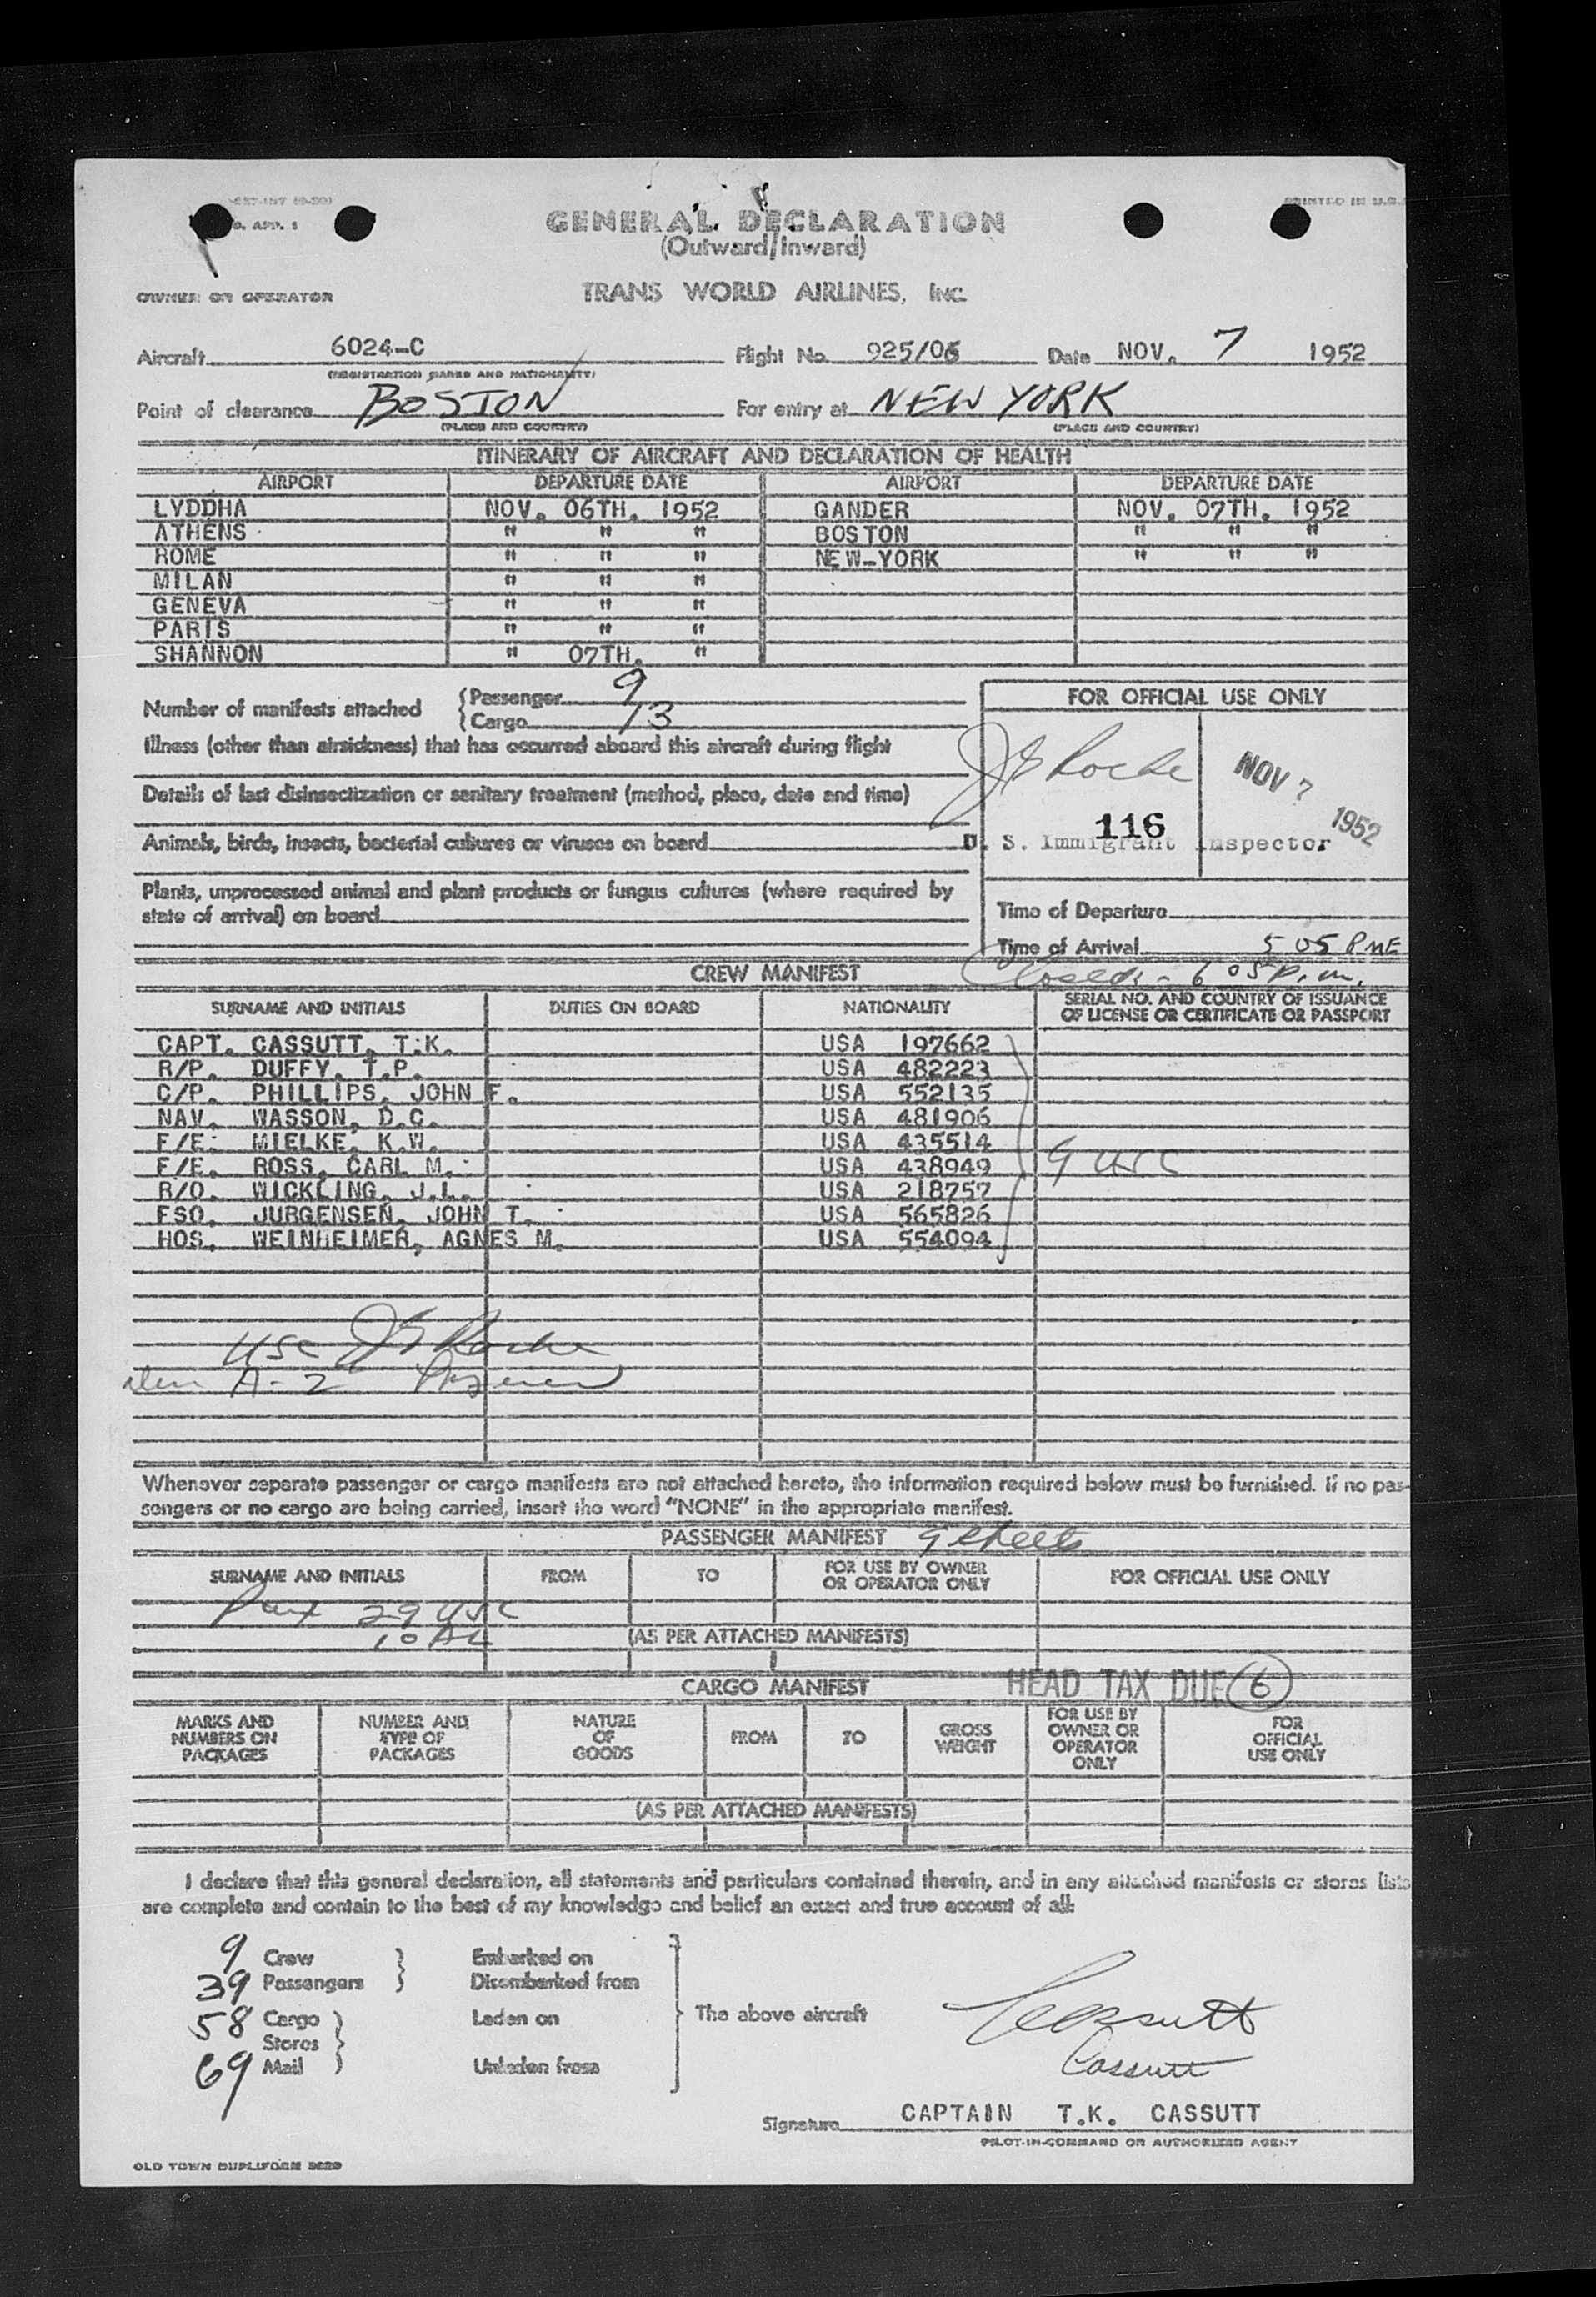 GENERAL DECLARATION
(Outward/Inward)
PRINTED IN U.S.
OWNER OR OPERATOR TRANS WORLD AIRLINES, INC.
Aircraft 6024-C Flight No. 925/06 Date NOV. 7 1952
(REGISTRATION MARKS AND NATIONALITY)
Point of clearance BOSTON For entry at NEW YORK
(PLACE AND COUNTRY) (PLACE AND COUNTRY)
ITINERARY OF AIRCRAFT AND DECLARATION OF HEALTH
AIRPORT DEPARTURE DATE AIRPORT DEPARTURE DATE
LYDDHA NOV. 06TH. 1952 GANDER NOV. 07TH. 1952
ATHENS " " " BOSTON " " "
ROME " " " NEW-YORK " " "
MILAN " " "
GENEVA " " "
PARIS " " "
SHANNON " 07TH. "
Number of manifests attached { Passenger 9
{ Cargo 13
Illness (other than airsickness) that has occurred aboard this aircraft during flight
Details of last disinsectization or sanitary treatment (method, place, date and time)
Animals, birds, insects, bacterial cultures or viruses on board
Plants, unprocessed animal and plant products or fungus cultures (where required by
state of arrival) on board
FOR OFFICIAL USE ONLY
J G Roche NOV 7 1952
116
U. S. Immigrant Inspector
Time of Departure
Time of Arrival 5 05 P ME
Closed - 6 05 P.m.
CREW MANIFEST
SURNAME AND INITIALS DUTIES ON BOARD NATIONALITY SERIAL NO. AND COUNTRY OF ISSUANCE
OF LICENSE OR CERTIFICATE OR PASSPORT
CAPT. CASSUTT, T.K. USA 197662
R/P. DUFFY, T.P. USA 482223
C/P. PHILLIPS, JOHN F. USA 552135
NAV. WASSON, D.C. USA 481906
F/E. MIELKE, K.W. USA 435514
F/E. ROSS, CARL M. USA 438949 9 USC
R/O. WICKLING, J.L. USA 218757
FSO. JURGENSEN, JOHN T. USA 565826
HOS. WEINHEIMER, AGNES M. USA 554094
USC J G Roche
A-2
Whenever separate passenger or cargo manifests are not attached hereto, the information required below must be furnished. If no pas-
sengers or no cargo are being carried, insert the word "NONE" in the appropriate manifest.
PASSENGER MANIFEST 9 sheets
SURNAME AND INITIALS FROM TO FOR USE BY OWNER
OR OPERATOR ONLY FOR OFFICIAL USE ONLY
Pax 29 USC
10 AL (AS PER ATTACHED MANIFESTS)
CARGO MANIFEST HEAD TAX DUE 6
MARKS AND
NUMBERS ON
PACKAGES NUMBER AND
TYPE OF
PACKAGES NATURE
OF
GOODS FROM TO GROSS
WEIGHT FOR USE BY
OWNER OR
OPERATOR
ONLY FOR
OFFICIAL
USE ONLY
(AS PER ATTACHED MANIFESTS)
I declare that this general declaration, all statements and particulars contained therein, and in any attached manifests or stores lists
are complete and contain to the best of my knowledge and belief an exact and true account of all:
9 Crew } Embarked on
39 Passengers } Disembarked from
58 Cargo } Laden on The above aircraft Cassutt
Stores
69 Mail } Unladen from Cassutt
Signature CAPTAIN T.K. CASSUTT
PILOT-IN-COMMAND OR AUTHORIZED AGENT
OLD TOWN DUPLIFORM